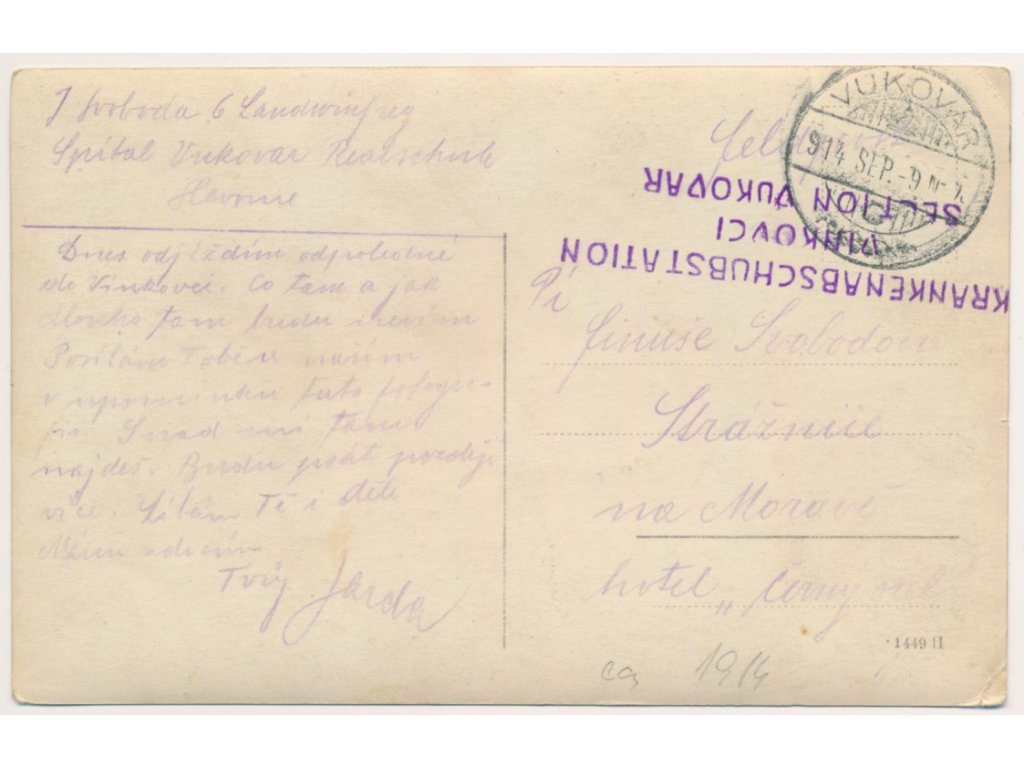 J Svoboda 6 Landw
Spital Vukovar Realschule
Slavonie
Dnes odjíždím odpoledne
do Vinkovci. Co tam a jak
dlouho tam budu nevím
Posílám Tobě a našim
v upomínku tuto fotogra-
fii. Snad mi tam
najdeš. Budu psát později
více. Líbám Tě i dětem
zdravím
Tvůj Jarda
Feldpost
VUKOVAR
914 SEP. -9
KRANKENABSCHUBSTATION
VINKOVCI
SEKTION VUKOVAR
Pí
Svobodova
Strážnice
na Moravě
hotel „Černý orel"
1449 II
ca 1914